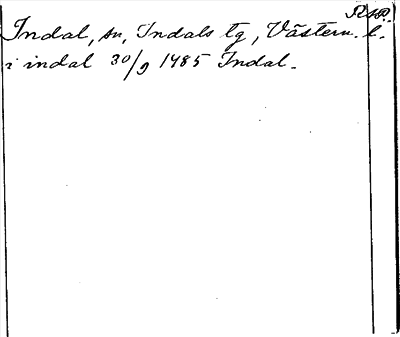 RAP.
Indal, sn, Indals tg, Västern. l.
i indal 30/9 1485 Indal.